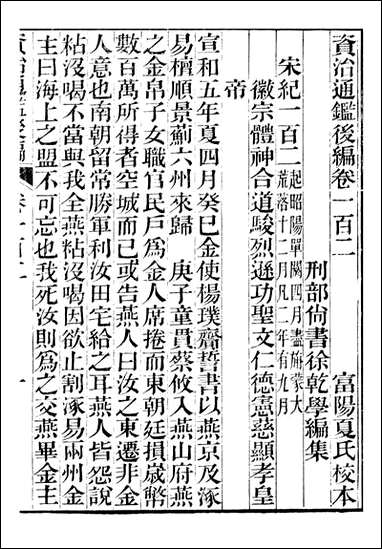 資治通鑑後編卷一百二
富陽夏氏校本
刑部尙書徐乾學編集
宋紀一百二起昭陽單閼四月盡旃蒙大
荒落十二月凡二年有九月
徽宗體神合道駿烈遜功聖文仁德憲慈顯孝皇
帝
宣和五年夏四月癸巳金使楊璞齎誓書以燕京及涿
易檀順景薊六州來歸　庚子童貫蔡攸入燕山府燕
之金帛子女職官民戶爲金人席捲而東朝廷損歲幣
數百萬所得者空城而已或告燕人曰汝之東遷非金
人意也南朝留常勝軍利汝田宅給之耳燕人皆怨說
粘沒喝不當與我全燕粘沒喝因欲止割涿易兩州金
主曰海上之盟不可忘也我死汝則爲之交燕畢金主
資治通鑑後編
卷一百二
一